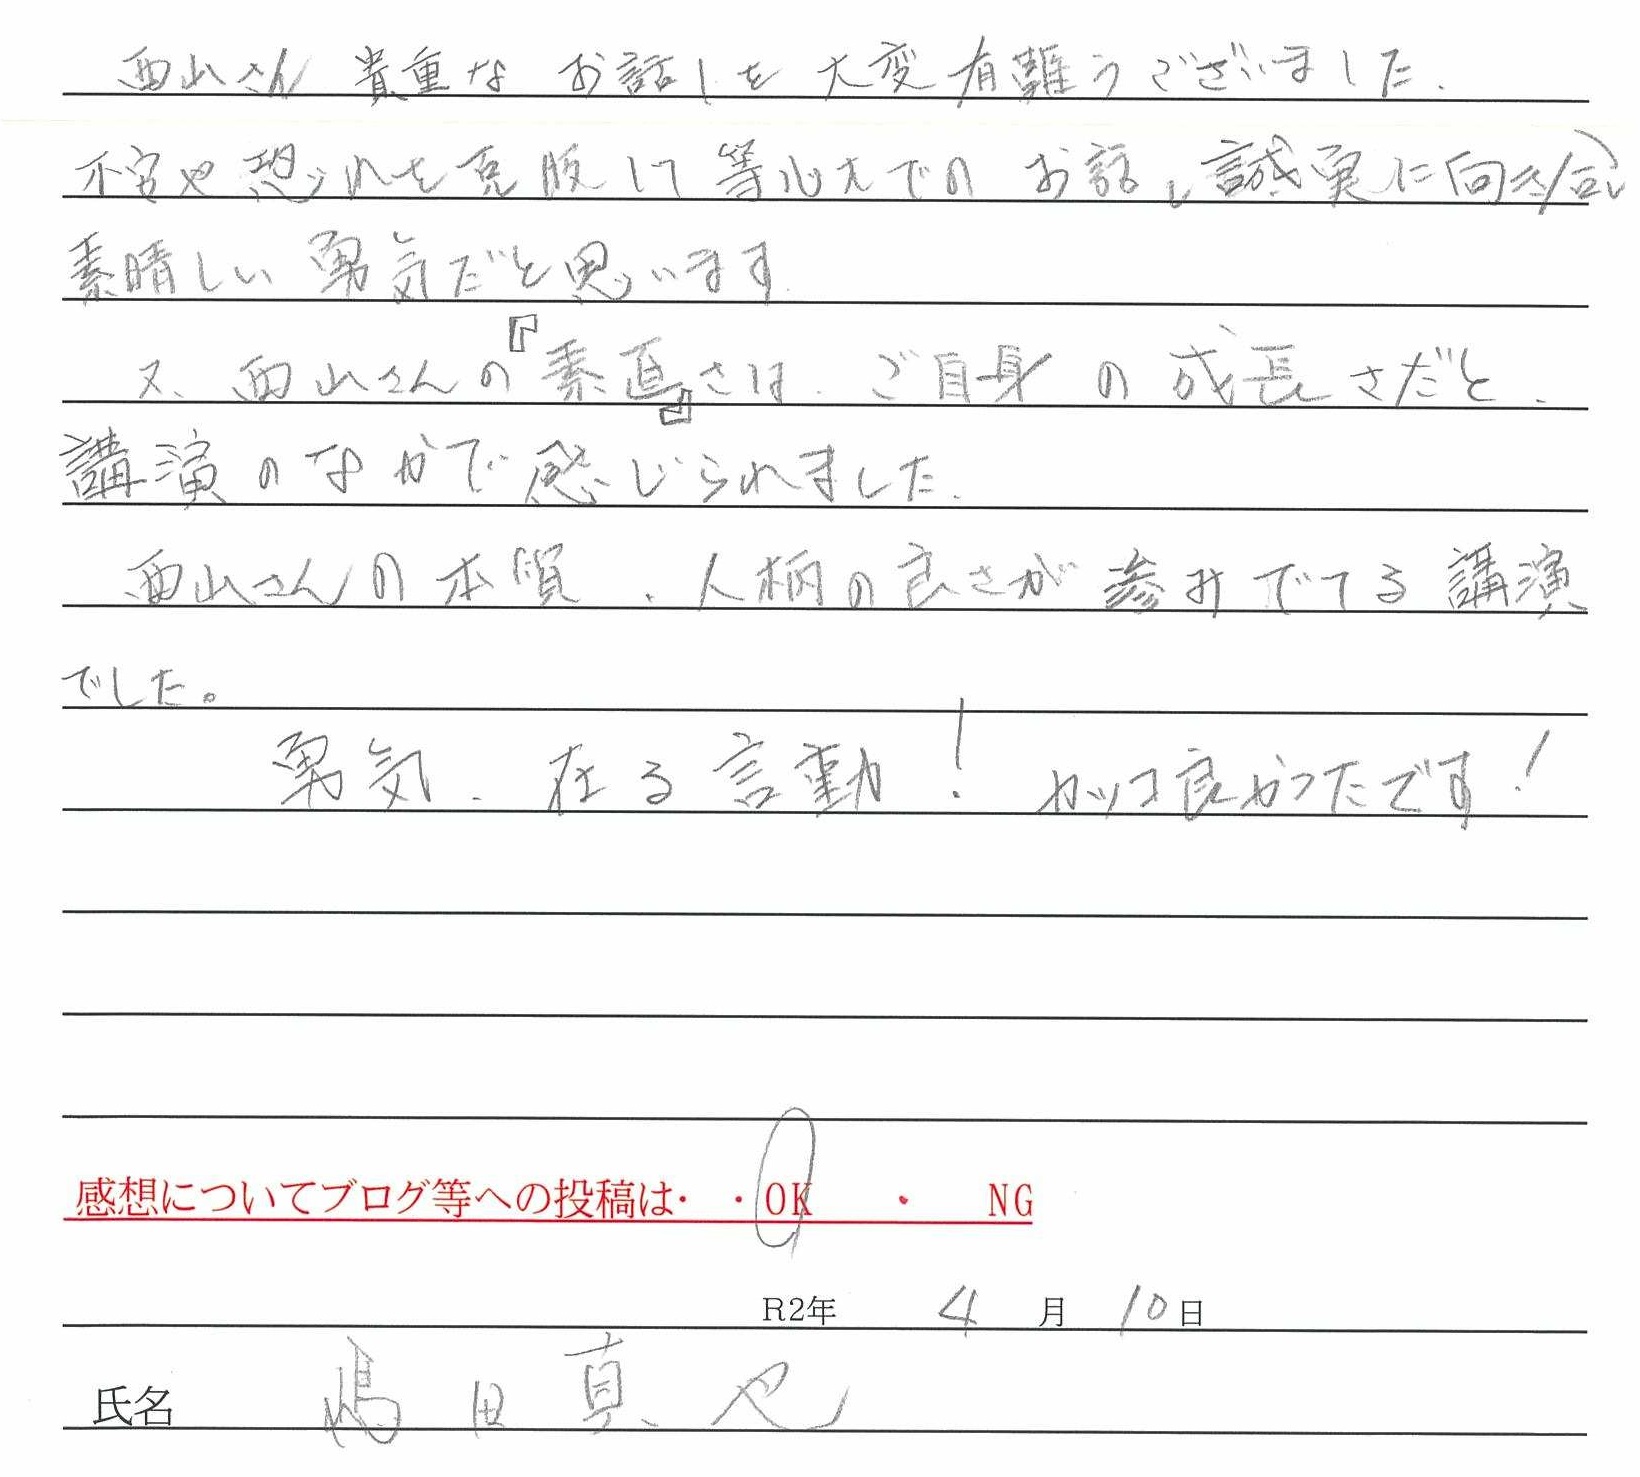 西山さん 貴重な お話しを 大変 有難うございました.
不安や恐れを克服して等心大でのお話し誠実に向き合い
素晴しい 勇気だと思います.
又、西山さんの『素直』さは、ご自身の成長さだと、
講演のなかで感じられました.
西山さんの本質、人柄の良さが滲みでてる講演
でした。
勇気、在る言動！ カッコ良かったです！
感想についてブログ等への投稿は・・OK ・ NG
R2年 4月 10日
氏名 嶋田真也